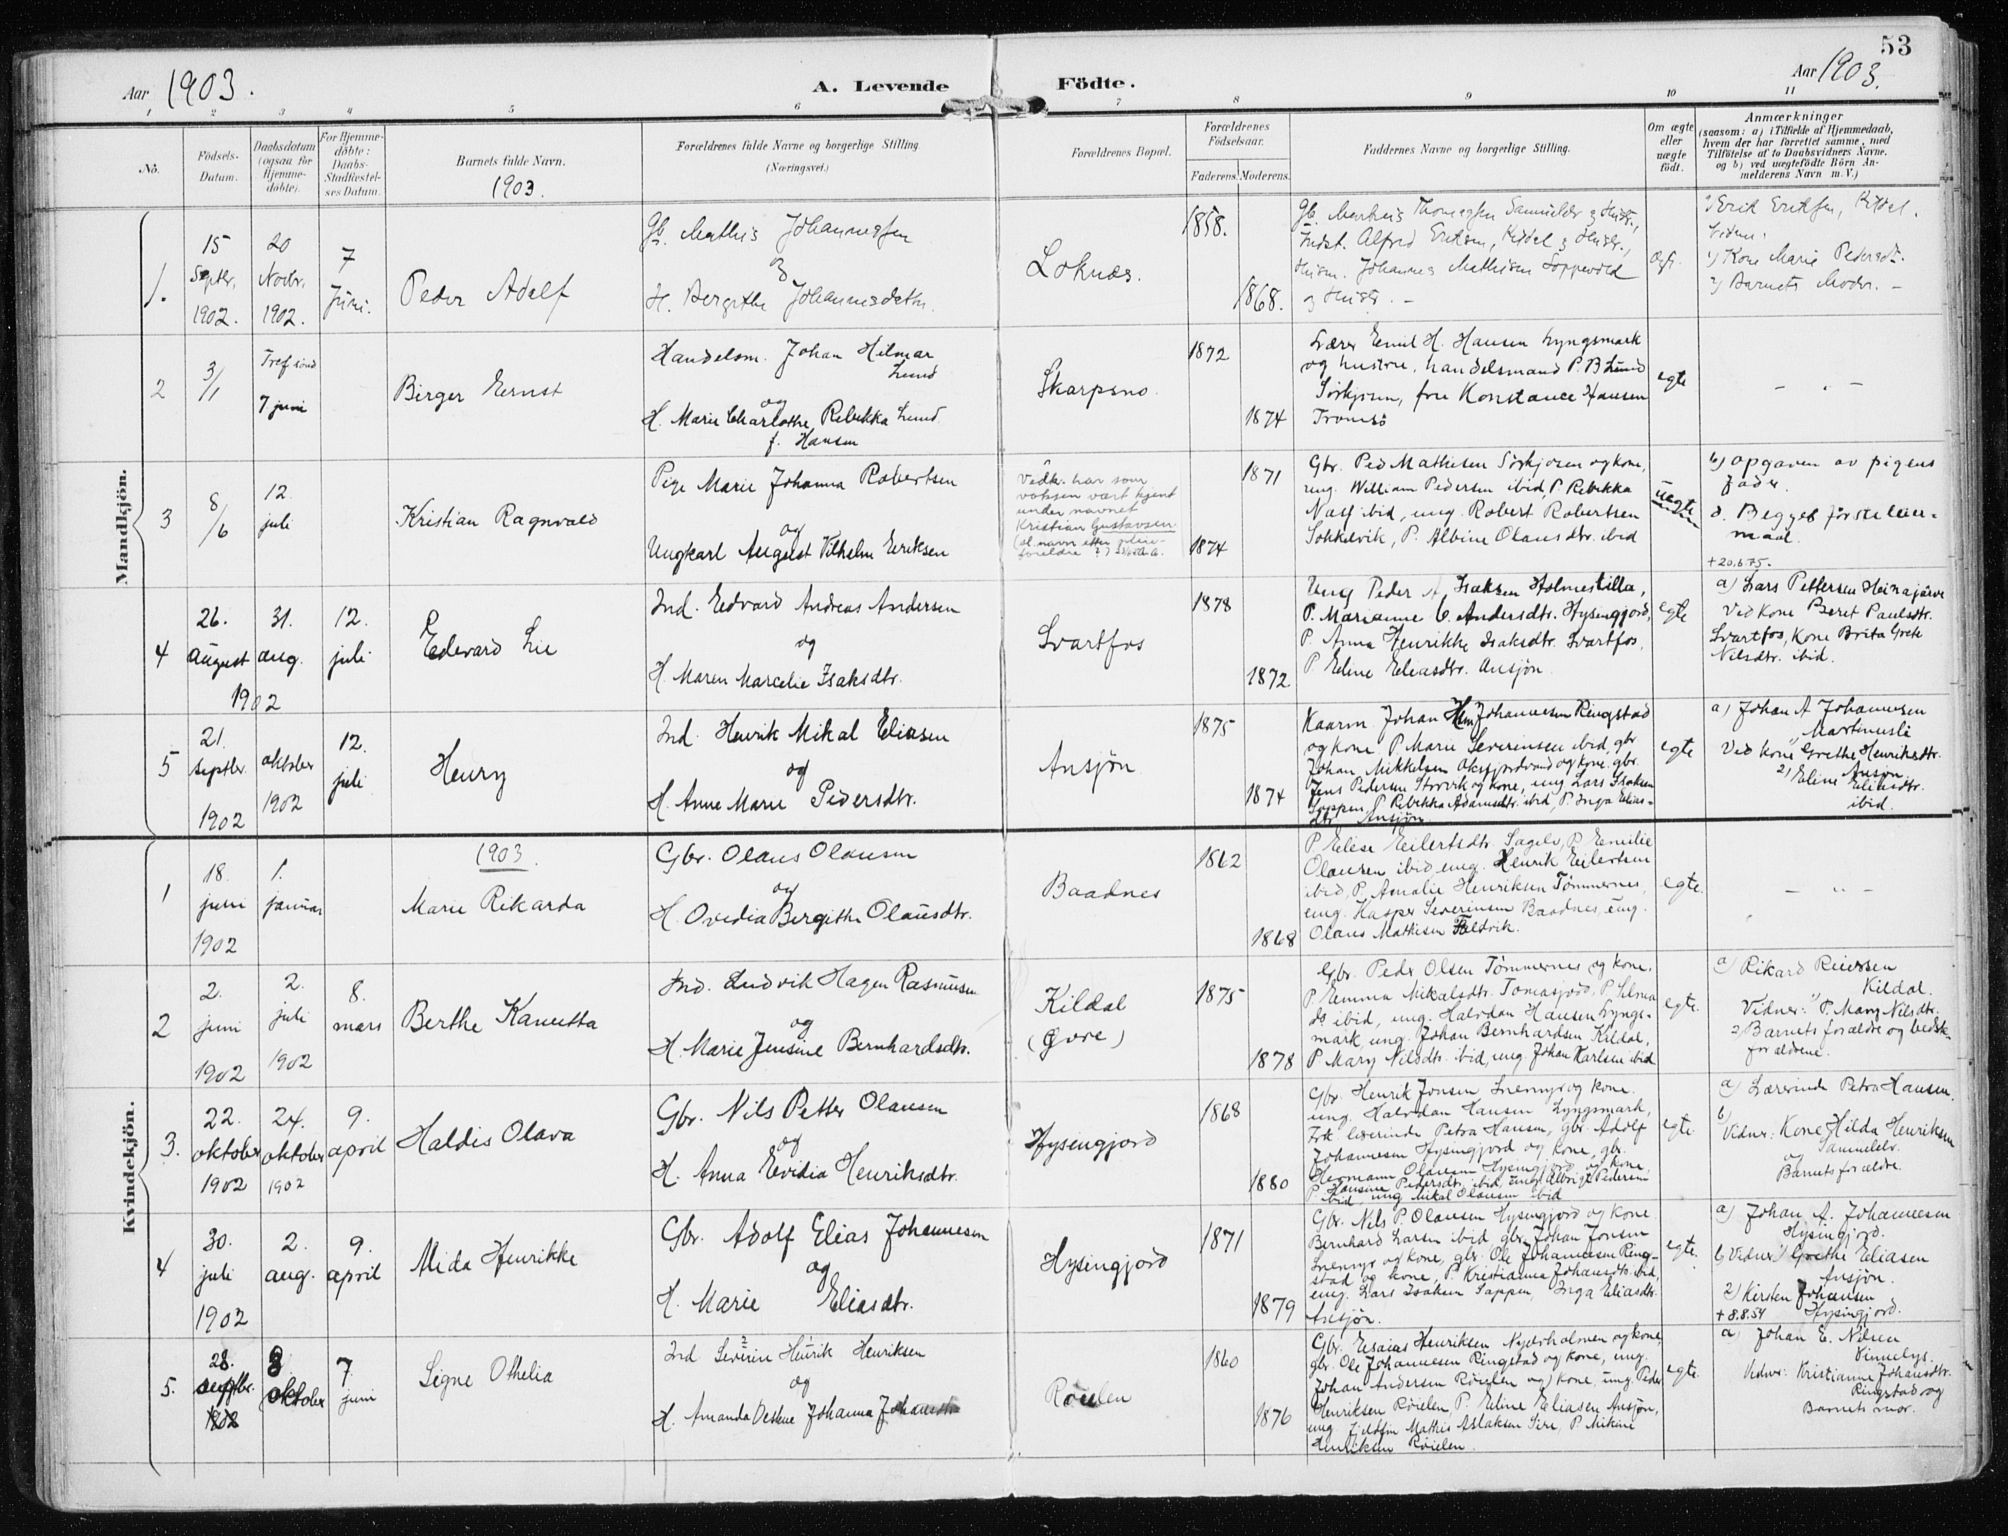 53
Aar 1903.
A. Levende Födte.
Aar 1903.
1 2 3 4 5 6 7 8 9 10 11
No.
Födsels-Datum.
Daabsdatum (ogsaa for Hjemmedöbte).
For Hjemmedöbte: Daabs-Stadfæstelses Datum.
Barnets fulde Navn.
1903.
Forældrenes fulde Navne og borgerlige Stilling
(Næringsvei.)
Forældrenes Bopæl.
Forældrenes Födselsaar.
Faderens. Moderens.
Faddernes Navne og borgerlige Stilling.
Om ægte eller uægte födt.
Anmærkninger
(saasom: a) i Tilfælde af Hjemmedaab,
hvem der har forrettet samme, med
Tilföielse af to Daabsvidners Navne.
og b) ved uægtefödte Börn Anmelderens Navn m. V.)
Mandkjön.
1.
15 Septbr. 1902.
20 Novbr. 1902.
7 Juni.
Peder Adolf
Gb. Mathis Johannesen
og
H. Bergithe Johannesdatter
Loknæs.
1858.
1868.
Gb. Markus Thomassen Samuelelv og Hustr.,
Indst. Alfred Eriksen, Kildal og Hustr.,
Husm. Johannes Mathisen Soppevold
og Hustr. –
Ægt.
1) Erik Eriksen, Kildal.
Vidne:
1) Kone Marie Pedersdt.
2) Barnets Moder. –
2
3/1
7 juni
Birger Ernst
Handelsm. Johan Hilmar
Lund
og
H. Marie Charlothe Rebekka Lund
f. Hansen
Skarpsno.
1872
1874
Lærer Emil H. Hansen Lyngsmark
og hustru, handelsmand P. B Lund
Sörkjosen, frøe Konstance Hansen
Tromsö
egte
– " –
3
8/6
12. juli
Kristian Ragnvald
Pige Marie Johanna Robertsen
og
Ungkarl August Vilhelm Eriksen
Vedk. har som
voksen vært kjent
under navnet
Kristian Gustavsen.
1871
1874
Gbr. Ped Mathisen Sörkjosen og kone,
ung. William Pedersen ibid, P. Rebekka
Næss ibid, ung. Robert Robertsen
Sokkelvik, P. Albine Olausdtr. ibid
uegte
b) opgaven av pigens
fader.
d. Begges förste leiermaal.
+ 20.6.75.
4
26. august
31. aug.
1902
12. juli
Edevard Lie
Ind. Edvard Andreas Andersen
og
H. Maren Marcelie Isaksdtr.
Svartfos
1878
1872
Ung Peder A Isaksen Holmestilla,
P. Marianne C. Andersdtr. Hysingjord,
P. Anna Henrikke Isaksdtr. Svartfos,
P Eline Eliasdtr. Ansjøn.
egte
a) Lars Pettersen Heinajärvi
Ved kone Beret Paulsdtr.
Svartfos, Kone Brita Grete
Nilsdtr. ibid.
5
21. septbr. 1902
oktober 1902
12. juli
Henry
Ind. Henrik Mikal Eliasen
og
H. Anne Marie Pedersdtr.
Ansjøn
1875
1874
Kaarm. Johan Johannesen Ringstad
og kone, P. Marie Severinsen ibid, gbr
Johan Mikkelsen Oksfjordvand og kone, gbr.
Jens Pedersen Storvik og kone, ung Lars Isaksen
Sappen, P. Rebekka Adamsdtr. ibid, P. Inga Eliasdtr. Ansjøn.
egte
a) Johan A Johannesen
Martinusli
Ved kone 1) Grethe Henriksdtr.
Ansøn
2) Eline Eliasdtr.
ibid.
Kvindekjön.
1903.
1
18. juni 1902
1. januar
Marie Rikarda
Gbr. Olaus Olausen
og
H. Ovedia Bergithe Olausdtr.
Baadnes
1862
1868
P. Elise Eilertsdtr. Sagelv, P. Emilie
Olausen ibid, ung. Henrik Eilertsen
ibid, P. Amalie Henriksen Tømmernes,
ung. Kasper Severinsen Baadnes, ung.
Olaus Mathisen Fieldvik.
egte.
– " –
2
2. juni 1902
2. juli 1902
8. mars
Berthe Kanutta
Ind. Ludvik Hagen Rasmusen
og
H. Marie Jensine Bernhardsdtr.
Kildal
(øvre)
1875
1878
Gbr. Peder Olsen Tømmernes og kone,
P. Emma Mikalsdtr. Tomasjord, P. Selma
ds ibid, ung. Halvdan Hansen Lyngsmark, ung. Johan Bernhardsen Kildal,
P Mary Nilsdtr. ibid, ung. Johan Karlsen ibid
egte.
a) Rikard Reiersen
Kildal.
Vidner: 1) P. Mary Nilsdtr.
2) Barnets forældre og bedsteforældrene.
3.
22. oktober 1902
24. oktober 1902
9. april
Haldis Olava
Gbr. Nils Petter Olausen
og
H. Anna Evidia Henriksdtr.
Hysingjord
1868
1880
Gbr. Henrik Jonsen Snemyr og kone.
ung. Halvdan Hansen Lyngsmark,
Frk. lærerinde Petra Hansen, gbr. Adolf
Johannesen Hysingjord og kone, gbr.
Hermann Olausen Hysingjord og kone,
P Hansine Pedersdtr. ibid, ung. Albrigt Pedersen
ibid, ung Mikal Olausen ibid
egte.
a) Lærerinde Petra Hansen.
b)
Vidner: Kone Hilda Henriksen
Samuelelv.
og
Barnets forældre.
4
30. juli 1902
2. aug.
9. april
Mida Henrikke
Gbr. Adolf Elias Johannesen
og
H. Marie Eliasdtr.
Hysingjord
1871
1879
Gbr. Nils P. Olausen Hysingjord og kone
Bernhard Larsen ibid, gbr. Johan Jonsen
Snemyr og kone, gbr. Ole Johannesen Ringstad og kone, P. Kristianna Johansdtr. ibid,
ung. Lars Isaksen Sappen, Inga Eliasdtr.
Ansjøn.
egte.
a) Johan A. Johannesen
Hysingjord.
b) Vidner: 1) Grethe Eliasen
Ansjøn.
2) Kirsten Johansen
Hysingjord.
+ 8.8.54
5.
28. septbr. 1902
8 oktober
7. juni
Signe Othelia
Ind Severin Henrik Henriksen
og
H. Amanda Johanna
Røielen
1860
1876
Gbr. Esaias Henriksen Nyderholmen og kone,
gbr. Ole Johannesen Ringstad og kone, ung.
Johan Andersen Røielen og kone, ung. Peder
Henriksen Røielen, P. Eline Eliasen Ansjøn,
ung Mathis Aslaksen P. Mikine
Henriksen Røielen.
egte
a) Johan E. Nilsen
Vinnelys.
Vidner: Kristianne Johansdtr.
Ringstad og
Barnets mor.